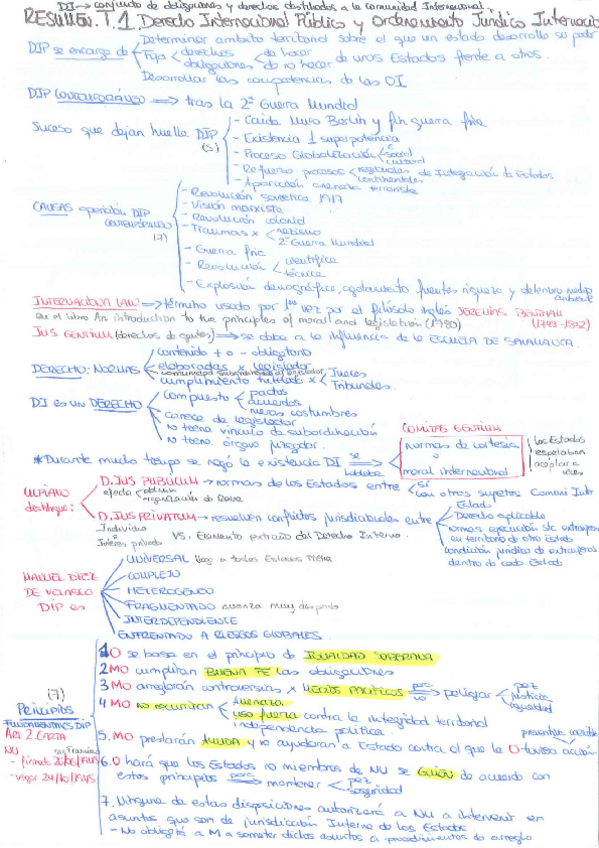 DI → conjunto de obligaciones y derechos destinados a la comunidad Internacional.
RESUMEN. T.1 Derecho Internacional Público y Ordenamento Jurídico Internacio
DIP se encarga de
Determinar ambito territorial sobre el que un estado desarrolla su poder
Fija derechos obligaciones de hacer de no hacer de unos Estados frente a otros.
Desarrollar las competencias de las OI
DIP CONTEMPORÁNEO ⟹ tras la 2ª Guerra Mundial
Suceso que dejan huella DIP
(5)
- Caida Muro Berlín y fin guerra fria
- Existencia 1 superpotencia
- Proceso Globalización social cultural
- Refuerzo procesos regionales continentales de Integración de Estados
- Aparición amenaza terrorista
CAUSAS aparición DIP
CONTEMPORÁNEO
(7)
- Revolución sovietica 1917
- Visión marxista
- Revolución colonial
- Traumas x nazismo
2ª Guerra Mundial
- Guerra fria
- Revolución científica
técnica
- Explosión demográfica, agotamiento fuentes riqueza y deterioro medio ambiente
INTERNATIONAL LAW ⟹ término usado por 1ª vez por el filósofo inglés JEREMIAS BENTHAM
en el libro An introduction to the principles of moral and legislation (1780) (1748-1832)
JUS GENTIUM (derechos de gentes) ⟹ se daba a la influencia de la ESCUELA DE SALAMANCA
DERECHO: NORMAS
contenido + o - obligatorio
elaboradas x legislador
cumplimiento tutelado x Jueces
Tribunales.
DI es un DERECHO
compuesto pactos
acuerdos
meras costumbres
carece de legislador
no tiene vinculo de subordinación
no tiene órgano juzgador.
COMITAS GENTIUM
*Durante mucho tiempo se negó la existencia DI se hablaba
normas de cortesía
o
moral internacional
los Estados
aceptar a
ULPIANO
distingue:
D. JUS PUBLICUM → normas de los Estados entre sí
con otros sujetos Comuni Inter
organización de Roma
D. JUS PRIVATUM → resuelven conflictos jurisdiccionales entre
Individuo
Interés privado VS. Elemento extraño del Derecho Interno.
Estado
Derecho aplicable
normas ejecución stc extranjeras
en territorio de otro Estado
condición jurídica de extranjeros
dentro de cada Estado
MANUEL DIEZ
DE VELASCO
DIP es
UNIVERSAL llega a todos Estados
COMPLEJO
HETEROGENEO
FRAGMENTADO avanza muy despacio
INTERDEPENDIENTE
ENFRENTADO A RIESGOS GLOBALES
(7)
Principios
FUNDAMENTALES DIP
Art 2 CARTA
NU
- firmat 26/06/1945
- vigor 24/10/1945
1. O se basa en el principio de IGUALDAD SOBERANA
2 MO cumplirán BUENA FE las obligaciones
3 MO arreglarán controversias x MEDIOS PACIFICOS para no peligrar paz
justicia
seguridad
4 MO no recurrirán Amenaza
uso fuerza contra la integridad territorial
independencia política.
5. MO prestarán AYUDA y no ayudaran a Estado contra el que la O tuviese acción
6. O hará que los Estados no miembros de NU se GUIEN de acuerdo con
estos principios para mantener paz
seguridad
7. Ninguna de estas disposiciones autorizará a NU a intervenir en
asuntos que son de jurisdicción Interna de los Estados.
- No obligatá a M a someter dichos asuntos a procedimientos de arreglo